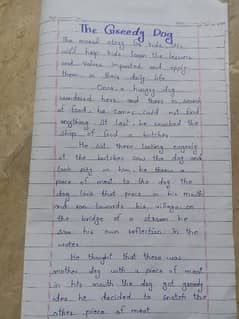 The Greedy Dog
The moral story for kids this
will help kids learn the lessons
and values imparted and apply
them in their daily life.
Once a hungry dog
wandered here and there in search
of food, he comes could not find
anything. At last, he reached the
shop of a butcher
He sat there looking eagerly
at the butcher saw the dog and
took pity on him, he threw a
piece of meat to the dog the
dog took that piece in his mouth
and ran towards his village on
the bridge of a stream he
saw his own reflection in the
water.
He thought that there was
another dog with a piece of meat
in his mouth the dog got greedy
idea he decided to snatch the
other piece of meat